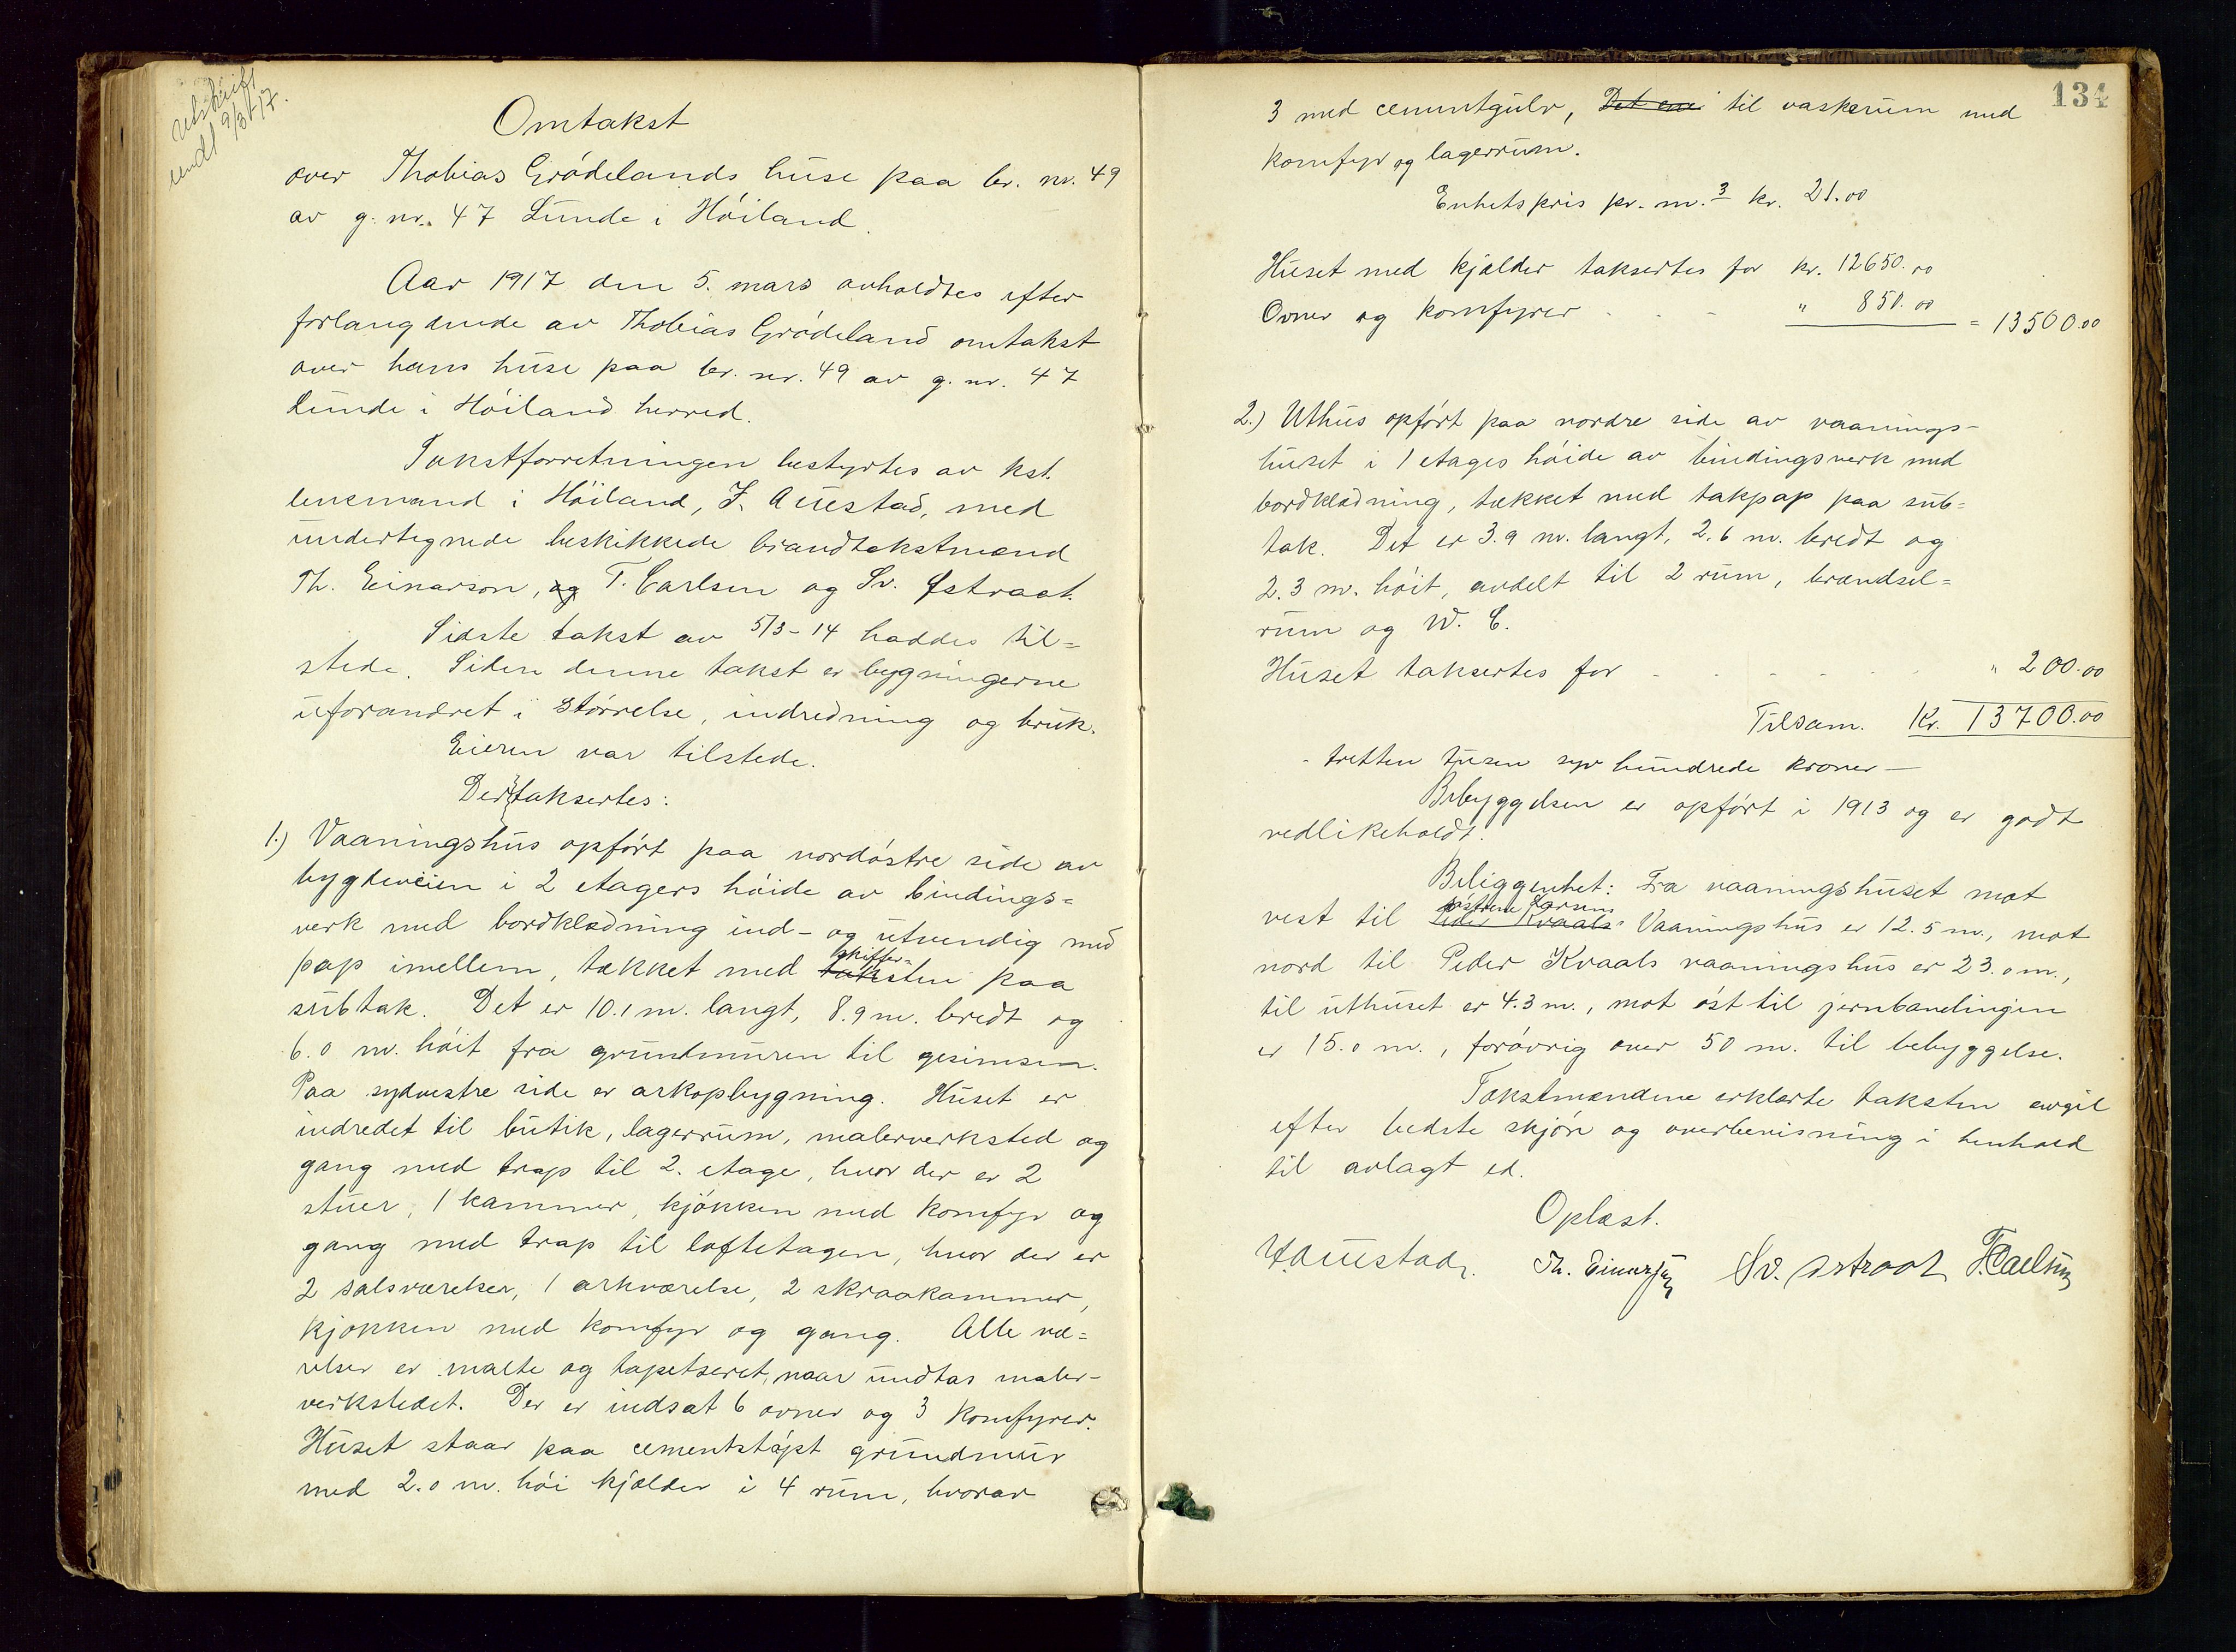 Utskrift
sendt 9/3 17.
Omtakst
over Thobias Grödelands huse paa br. nr. 49
av g. nr. 47 Lunde i Höiland.
Aar 1917 den 5. mars avholdtes efter
forlangende av Thobias Grödeland omtakst
over hans huse paa br. nr. 49 av g. nr. 47
Lunde i Höiland herred.
Takstforretningen bestyrtes av kst.
lensmand i Höiland, J. Auestad, med
undertegnede beskikkede brandtakstmænd
Th. Einarson, og T. Carlsen og Sv. Østraat.
Sidste takst av 5/3-14 haddes til=
stede. Siden denne takst er bygningerne
uforandret i större­lse, indredning og bruk.
Eieren var tilstede.
Der taksertes:
1.) Vaaningshus opfört paa nordöstre side av
bygdeveien i 2 etagers höide av bindings=
verk med bordklædning ind- og utvendig med
skiffer=
pap imellem, tækket med taksten paa
subtak. Det er 10.1 m. langt, 8.9 m. bredt og
6.0 m. höit fra grundmuren til gesimsen.
Paa sydvestre side er arkopbygning. Huset er
indredet til butik, lagerrum, malerverksted og
gang med trap til 2. etage, hvor der er 2
stuer, 1 kammer, kjökken med komfyr og
gang med trap til loftetagen, hvor der er
2 salsværelser, 1 arkværelse, 2 skraakammer,
kjökken med komfyr og gang. Alle væ=
relser er malte og tapetseret, naar undtas maler-
verkstedet. Der er indsat 6 ovner og 3 komfyrer.
Huset staar paa cementstöpt grundmur
med 2.0 m. höi kjælder i 4 rum, hvorav
134
3 med cementgulv, Det ene til vaskerum med
komfyr og lagerrum.
Enhetspris pr. m.3 kr. 21.00
Huset med kjælder taksertes for kr. 12650.00
Ovner og komfyrer . . . " 850.00 = 13500.00
2.) Uthus opfört paa nordre side av vaanings-
huset i 1 etages höide av bindingsverk med
bordklædning, tækket med takpap paa sub=
tak. Det er 3.9 m. langt, 2.6 m. bredt og
2.3 m. höit, avdelt til 2 rum, brændsel=
rum og W. C.
Huset taksertes for . . . . . " 200.00
Tilsam. Kr. 13700.00
- tretten tusen syv hundrede kroner -
Bebyggelsen er opfört i 1913 og er godt
vedlikeholdt.
Beliggenhet: Fra vaaningshuset mot
söstrene Larsens
vest til Peder Kvaals Vaaningshus er 12.5 m., mot
nord til Peder Kvaals vaaningshus er 23.0 m.,
til uthuset er 4.3 m., mot öst til jernbanelinjen
er 15.0 m., forövrig over 50 m. til bebyggelse.
Takstmændene erklærte taksten avgit
efter bedste skjön og overbevisning i henhold
til avlagt ed.
Oplæst.
J. Auestad. Th. Einarson Sv. Østraat T. Carlsen